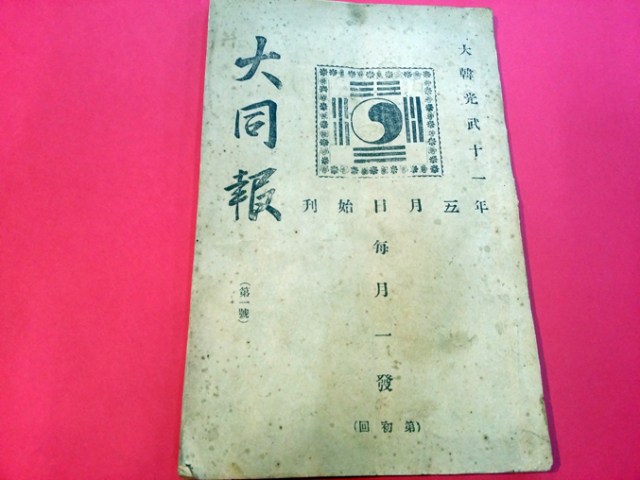 大韓光武十一
年五月日始刊
每月一發
(第初回)
大同報
(第一號)